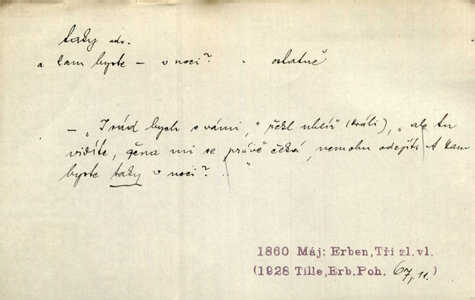 taky adv.
a kam byste — v noci? „ ostatně
— „I rád bych s vámi," řekl uhlíř (králi), „ale tu
vidíte, žena mi se právě čeká, nemohu odejíti. A kam
byste taky v noci? "
1860 Máj: Erben, Tři zl. vl.
(1928 Tille, Erb. Poh. 67, 11.)